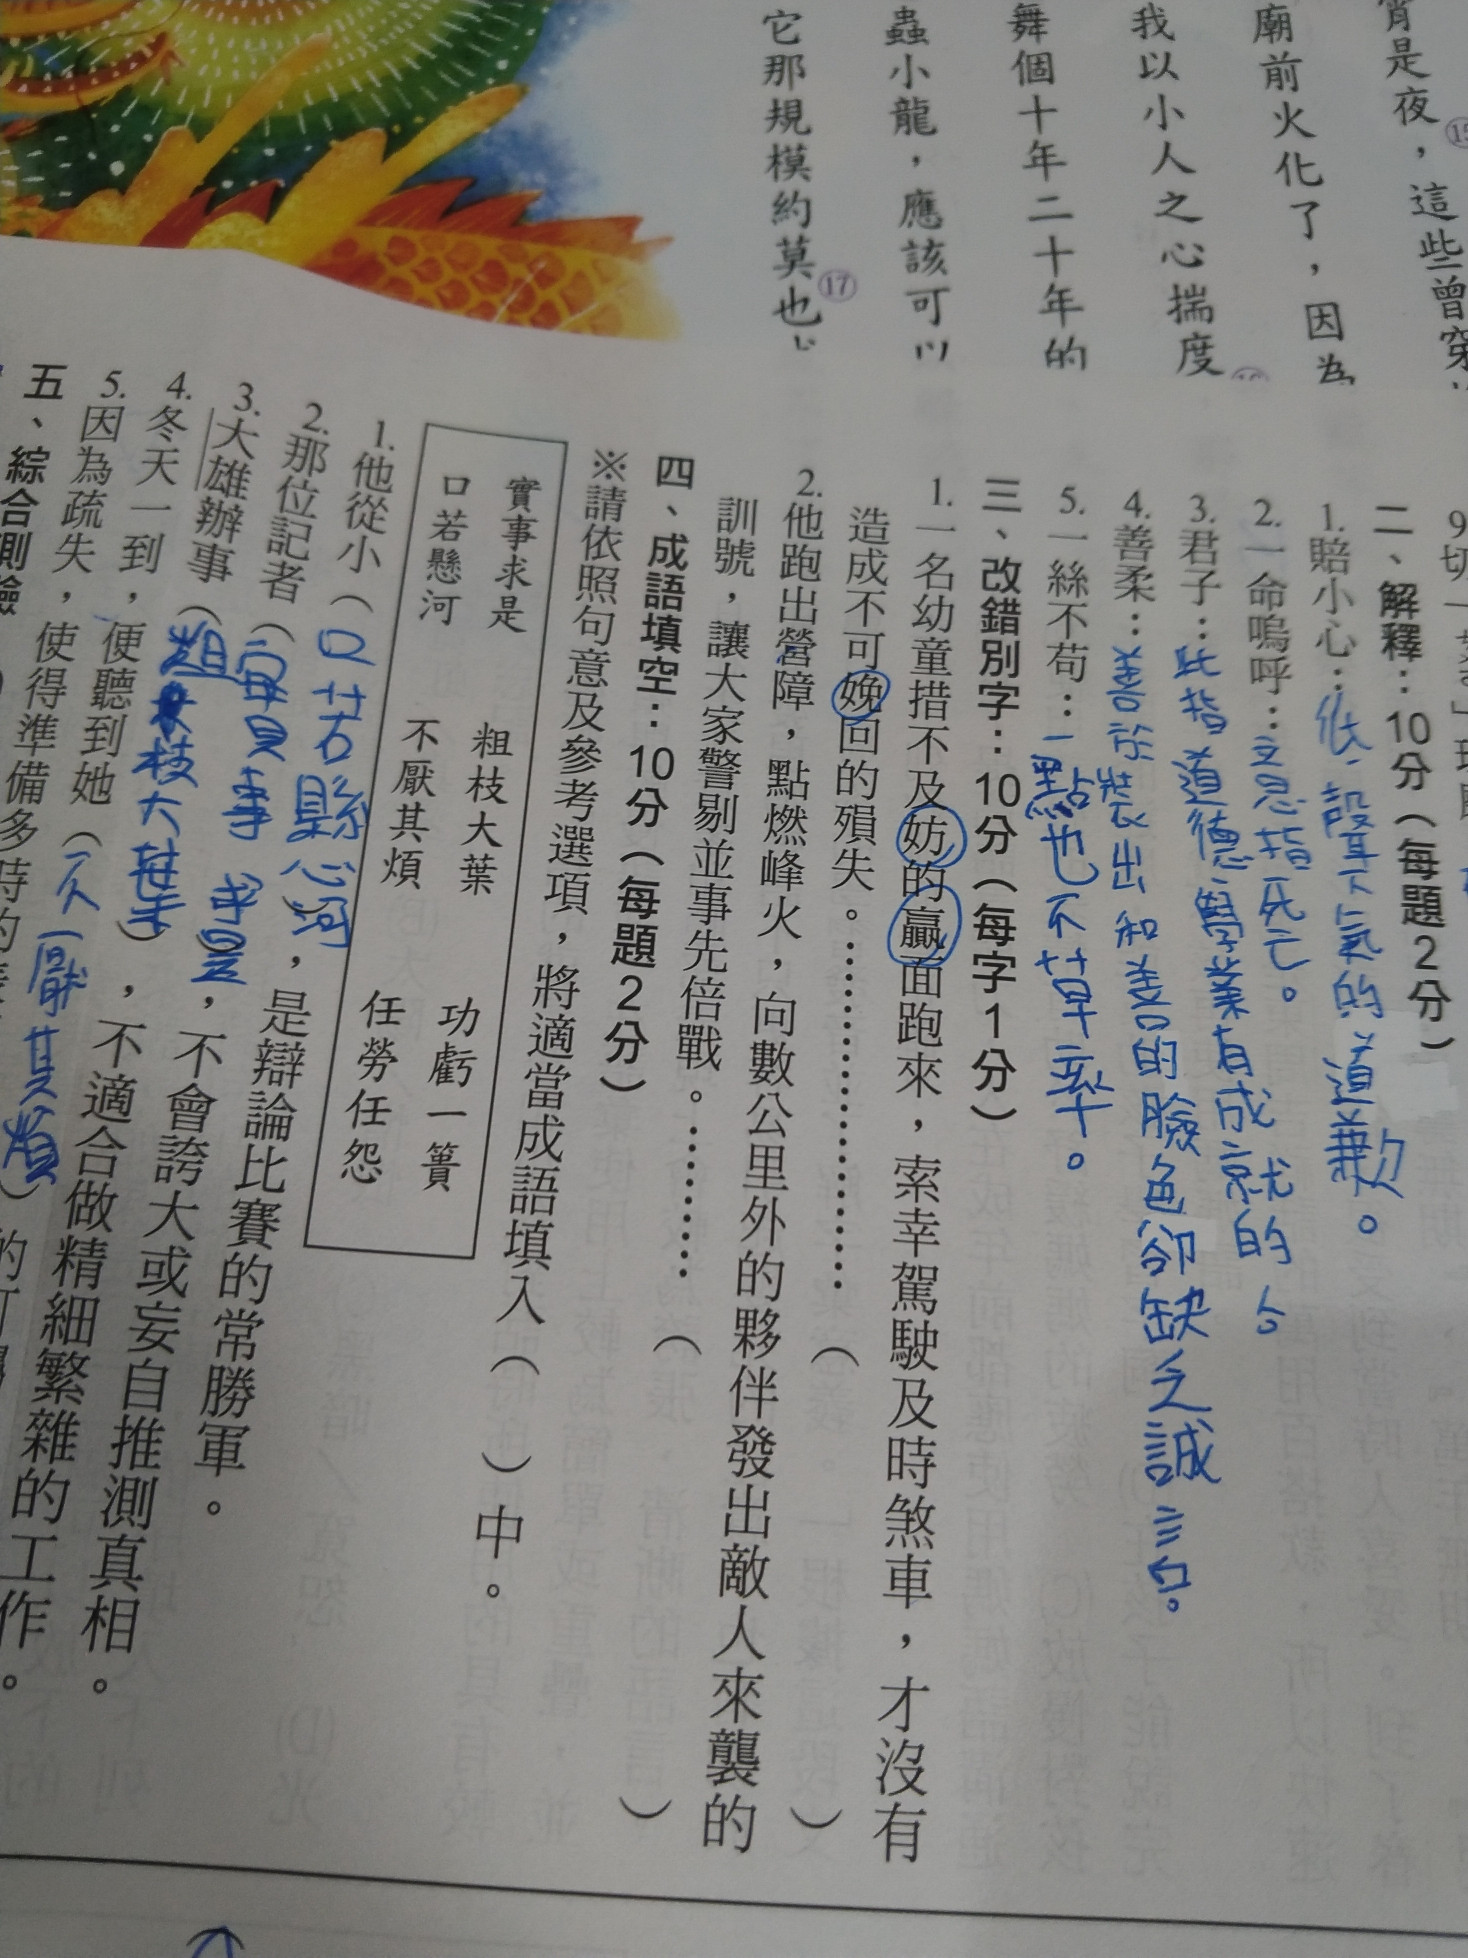 宵是夜，這些曾穿
廟前火化了，因為
我以小人之心揣度
舞個十年二十年的
蟲小龍，應該可以
它那規模約莫也
⑰
二、解釋：10分（每題2分）
1.賠小心：低聲下氣的道歉。
2.一命嗚呼：意思指死亡。
3.君子：此指道德學業有成就的人
4.善柔：善於裝出和善的臉色卻缺乏誠信。
5.一絲不苟：一點也不草率。
三、改錯別字：10分（每字1分）
1.一名幼童措不及妨的贏面跑來，索幸駕駛及時煞車，才沒有
造成不可娩回的殞失。……………………（　　）
2.他跑出營障，點燃峰火，向數公里外的夥伴發出敵人來襲的
訓號，讓大家警剔並事先倍戰。…………（　　）
四、成語填空：10分（每題2分）
※請依照句意及參考選項，將適當成語填入（　　）中。
實事求是　粗枝大葉　功虧一簣
口若懸河　不厭其煩　任勞任怨
1.他從小（口若懸河），是辯論比賽的常勝軍。
2.那位記者（實事求是），不會誇大或妄自推測真相。
3.大雄辦事（粗枝大葉），不適合做精細繁雜的工作。
4.冬天一到，便聽到她（不厭其煩）的叮
5.因為疏失，使得準備多時的
五、綜合測驗